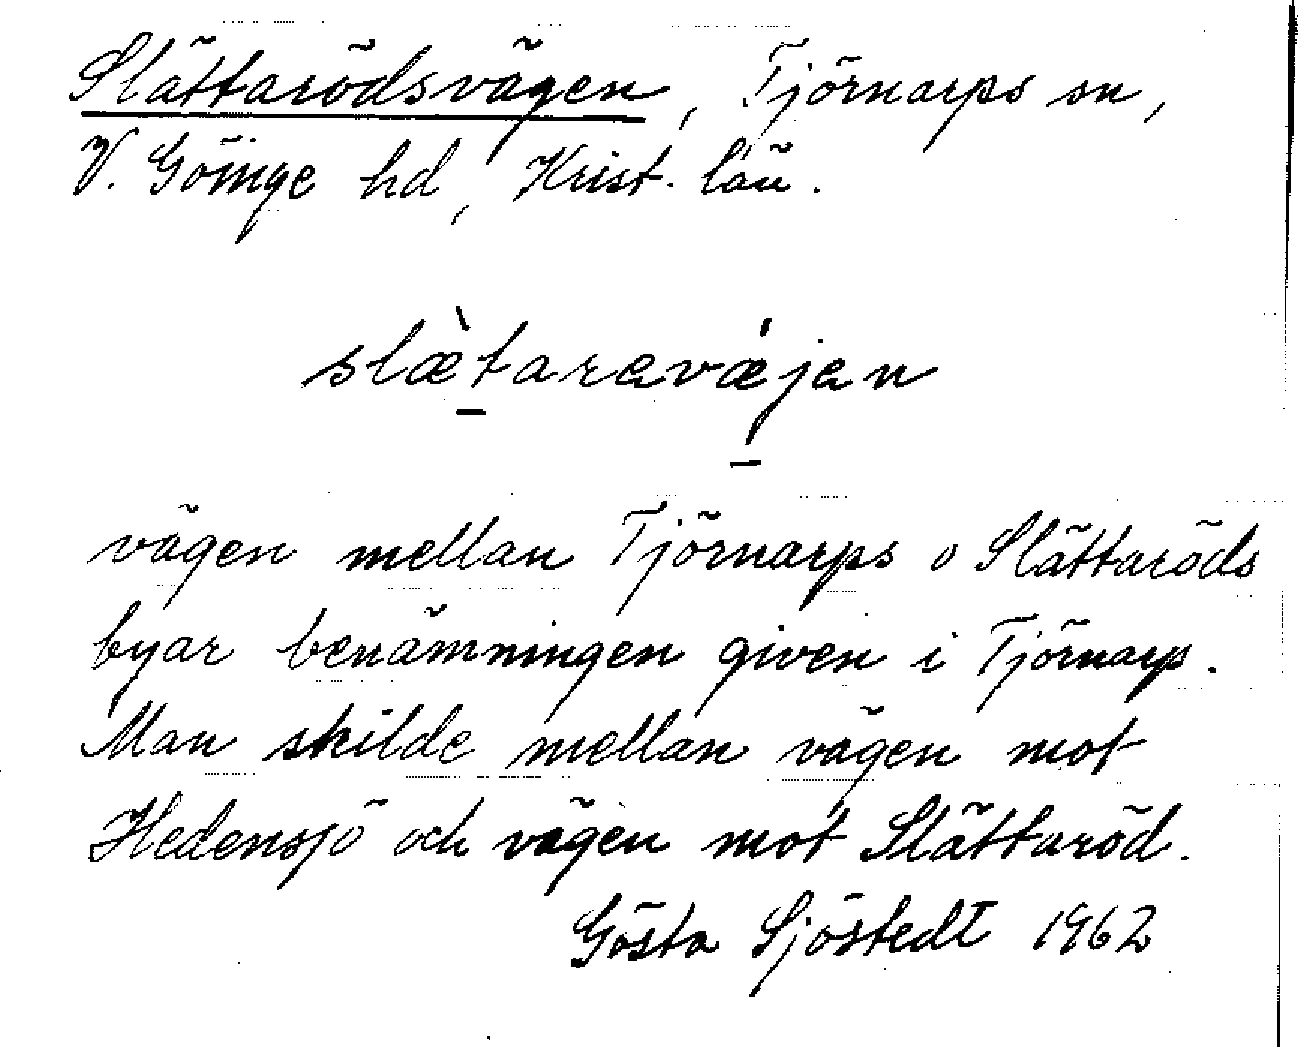 Slättarödsvägen, Tjörnarps sn,
V. Göinge hd, Krist. län.
slæ̀taravǽjan
vägen mellan Tjörnarps o Slättaröds
byar benämningen given i Tjörnarp.
Man skilde mellan vägen mot
Hedensjö och vägen mot Slättaröd.
Gösta Sjöstedt 1962